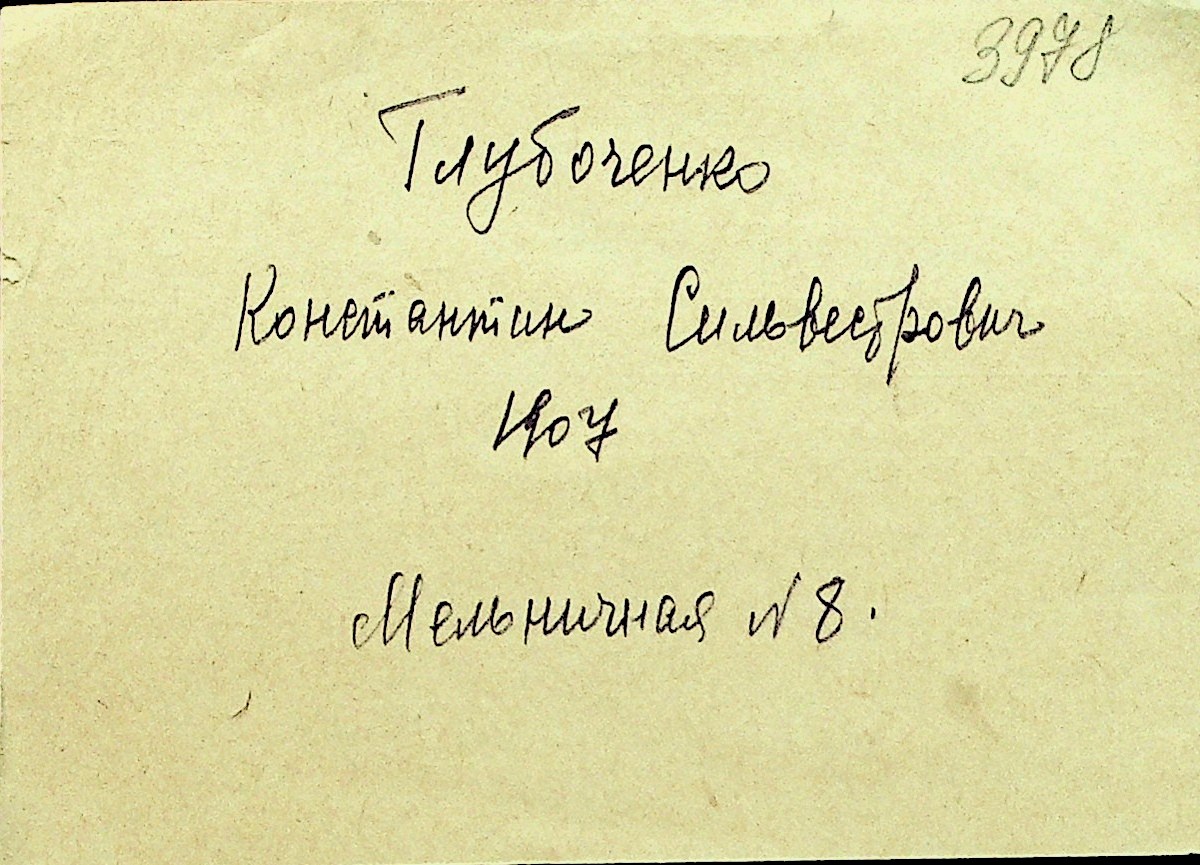 3978
Глубоченко
Константин Сильвестрович
1907
Мельничная N 8.